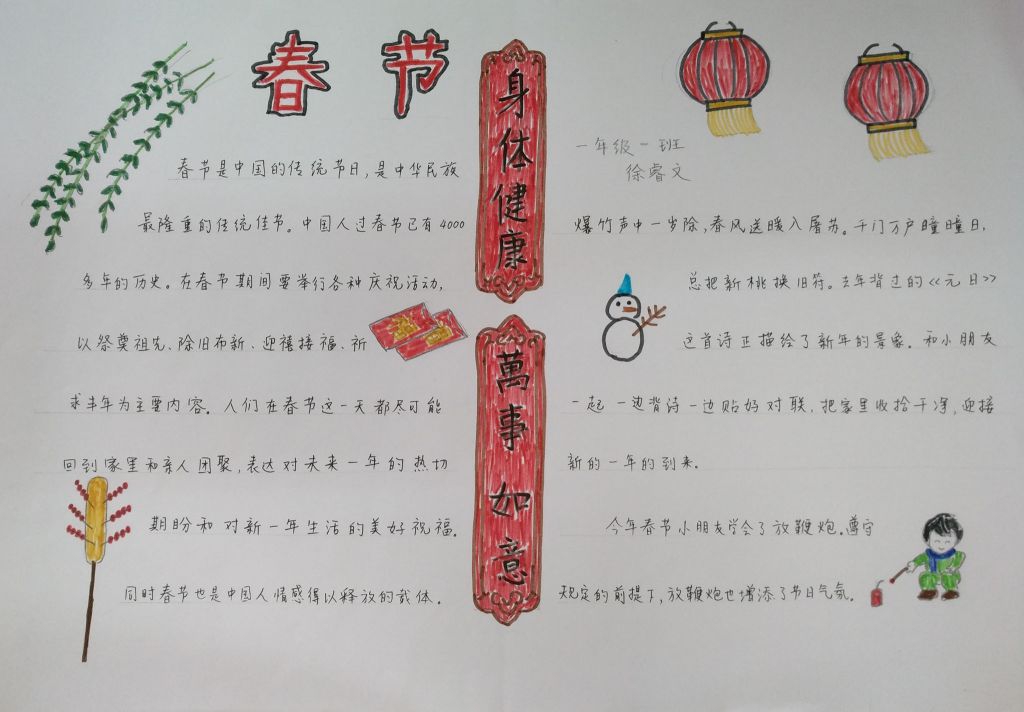 春节
春节是中国的传统节日，是中华民族
最隆重的传统佳节。中国人过春节已有4000
多年的历史。在春节期间要举行各种庆祝活动，
以祭奠祖先、除旧布新、迎禧接福、祈
求丰年为主要内容。人们在春节这一天都尽可能
回到家里和亲人团聚，表达对未来一年的热切
期盼和对新一年生活的美好祝福。
同时春节也是中国人情感得以释放的载体。
身体健康
萬事如意
一年级一班
徐睿文
爆竹声中一岁除，春风送暖入屠苏。千门万户曈曈日，
总把新桃换旧符。去年背过的《元日》
这首诗正描绘了新年的景象。和小朋友
一起一边背诗一边贴好对联，把家里收拾干净，迎接
新的一年的到来。
今年春节小朋友学会了放鞭炮。遵守
规定的前提下，放鞭炮也增添了节日气氛。